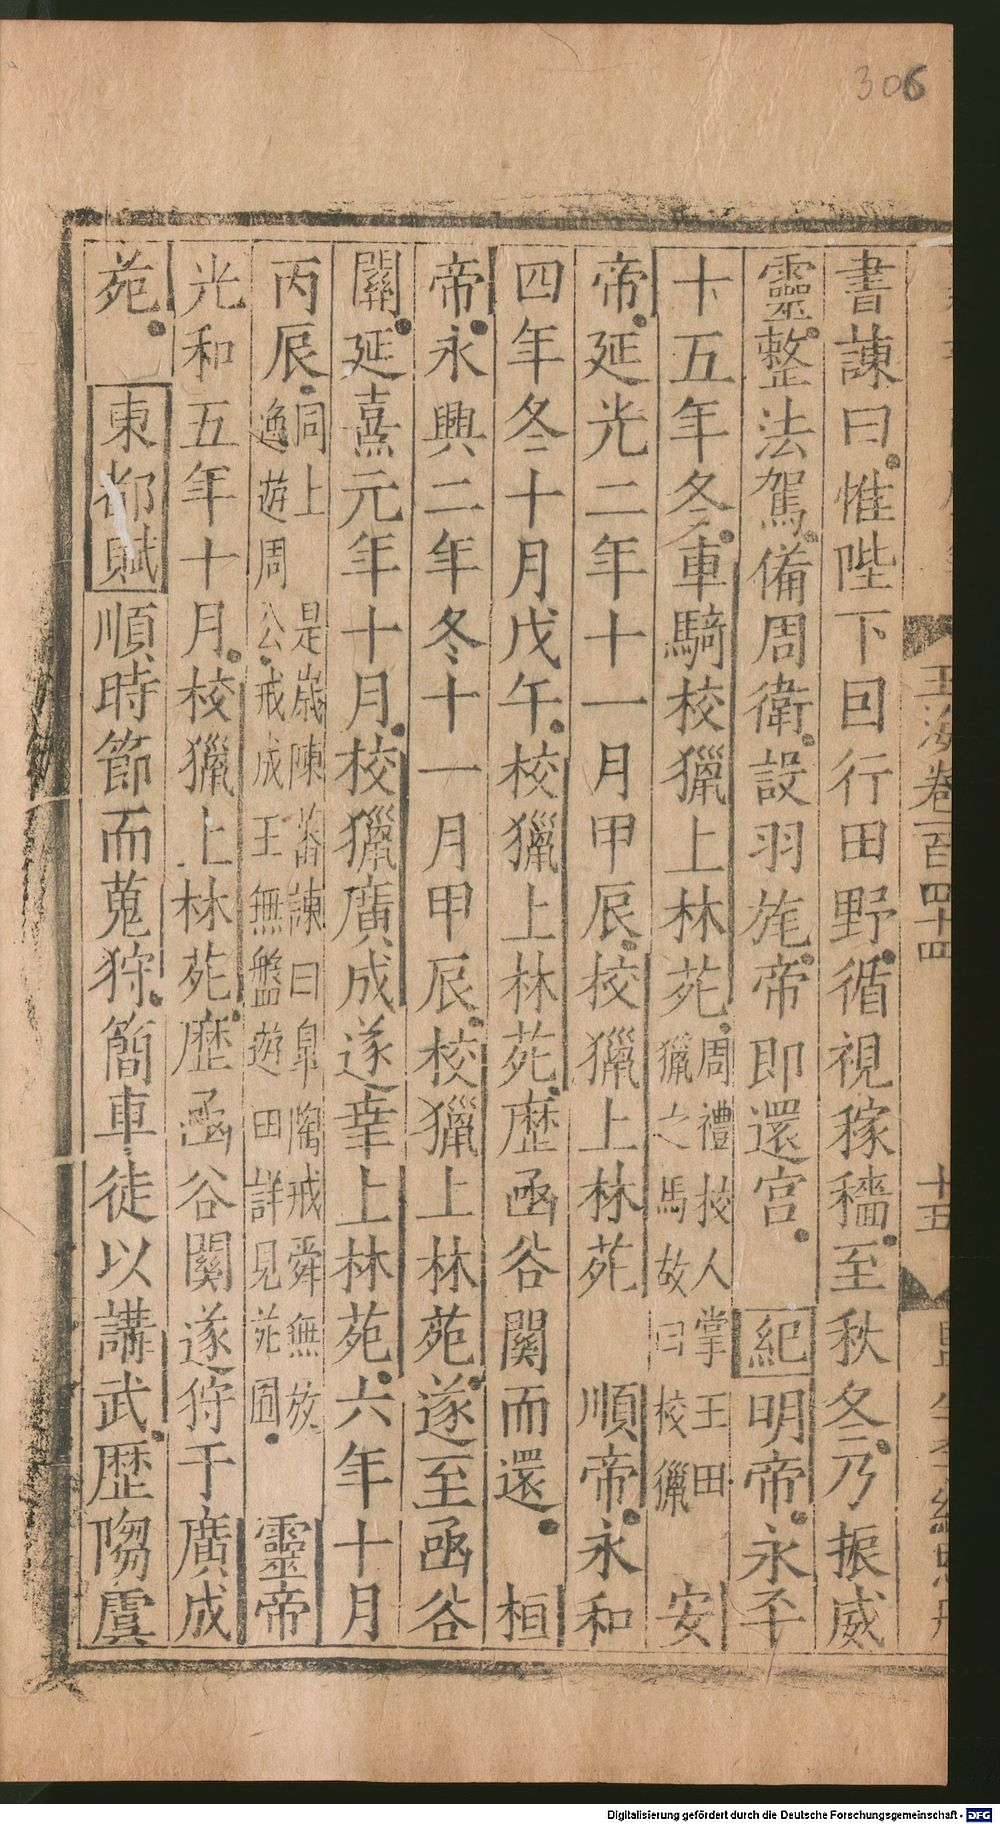 306
玉海卷一百四十四
十五
書諫曰惟陛下回行田野循視稼穡至秋冬乃振威
靈整法駕備周衛設羽旄帝即還宮 紀明帝永平
十五年冬車騎校獵上林苑周禮校人掌王田
獵之馬故曰校獵 安
帝延光二年十一月甲辰校獵上林苑 順帝永和
四年冬十月戊午校獵上林苑歷函谷關而還 桓
帝永興二年冬十一月甲辰校獵上林苑遂至函谷
關延熹元年十月校獵廣成遂幸上林苑六年十月
丙辰同上 是歲陳蕃諫曰皐陶戒舜無放
逸遊周公戒成王無盤遊田詳見苑囿 靈帝
光和五年十月校獵上林苑歷函谷關遂狩于廣成
苑 東都賦順時節而蒐狩簡車徒以講武歷騶虞
Digitalisierung gefördert durch die Deutsche Forschungsgemeinschaft - DFG